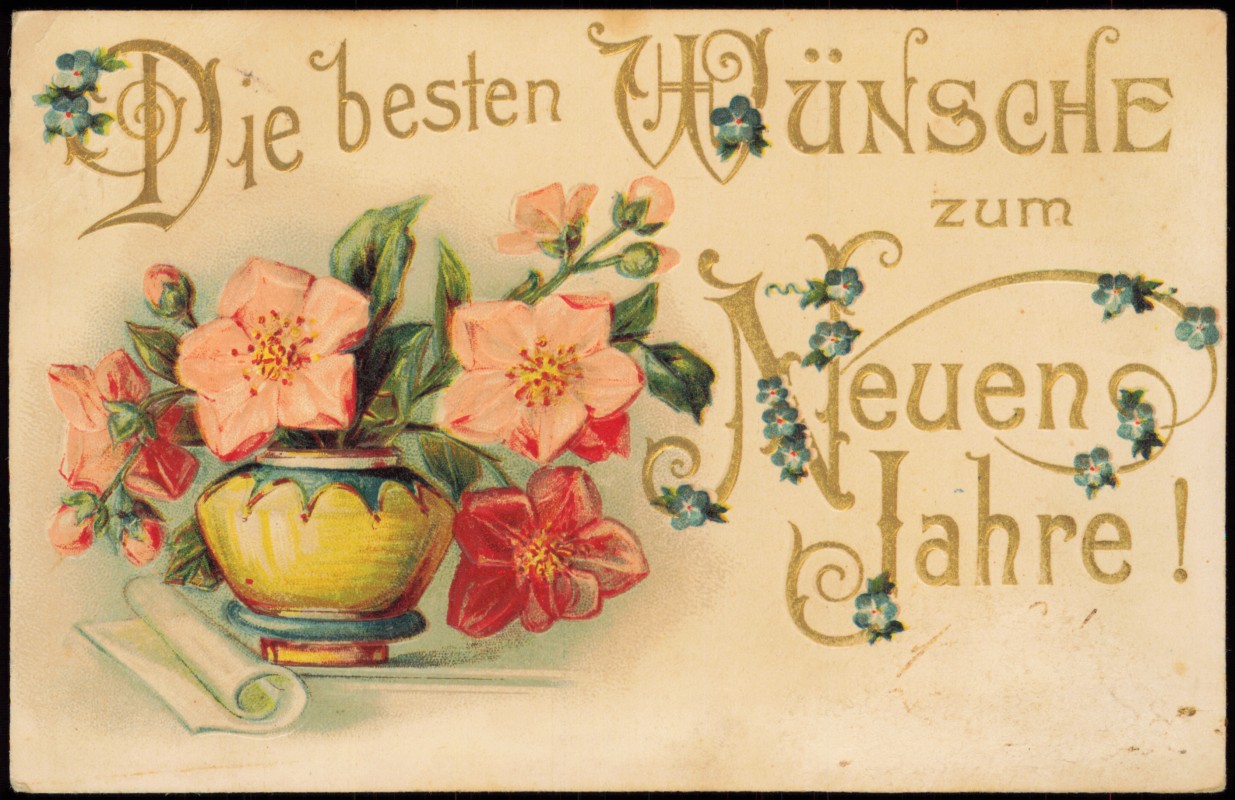 Die besten WÜNSCHE
zum
Neuen
Jahre!